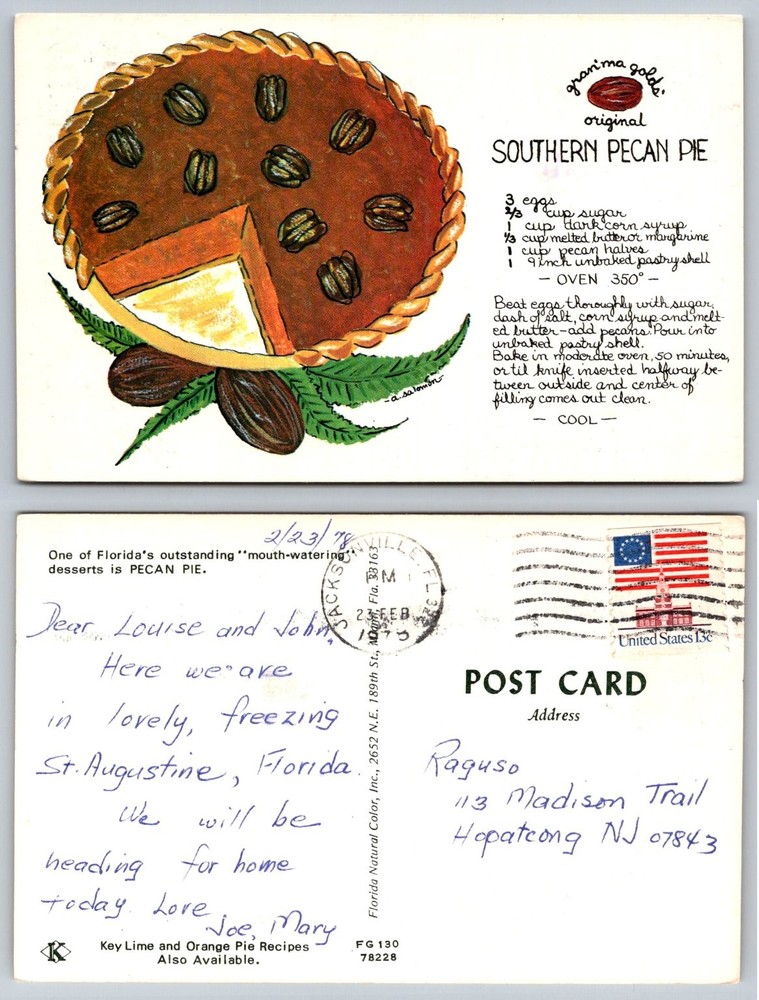 gran'ma golds'
original
SOUTHERN PECAN PIE
3 eggs
2/3 cup sugar
1 cup dark corn syrup
1/3 cup melted butter or margarine
1 cup pecan halves
1 9 inch unbaked pastry shell
- OVEN 350° -
Beat eggs thoroughly with sugar,
dash of salt, corn syrup and melt-
ed butter - add pecans. Pour into
unbaked pastry shell.
Bake in moderate oven, 50 minutes,
or til knife inserted halfway be-
tween outside and center of
filling comes out clean.
- COOL -
-a. salomon-
2/23/78
One of Florida's outstanding "mouth-watering"
desserts is PECAN PIE.
Dear Louise and John,
Here we are
in lovely, freezing
St. Augustine, Florida.
We will be
heading for home
today. Love
Joe, Mary
Key Lime and Orange Pie Recipes
Also Available.
K
FG 130
78228
Florida Natural Color, Inc., 2652 N.E. 189th St., Miami, Fla. 33163
JACKSONVILLE, FL
PM
23 FEB
United States 13c
POST CARD
Address
Raguso
113 Madison Trail
Hopatcong NJ 07843